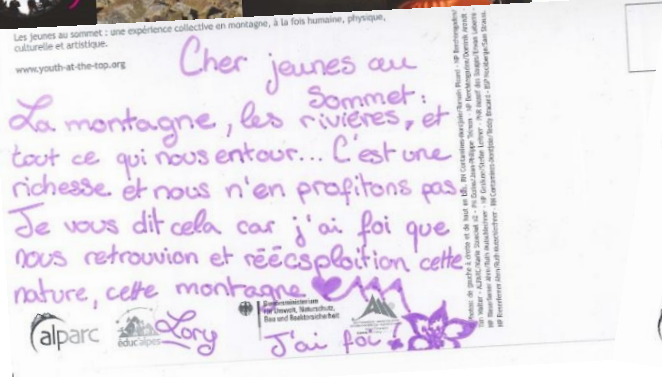 Les jeunes au sommet : une expérience collective en montagne, à la fois humaine, physique,
culturelle et artistique.
www.youth-at-the-top.org
Cher jeunes au
Sommet :
La montagne, les rivières, et
tout ce qui nous entour... C'est une
richesse et nous n'en profitons pas.
Je vous dit cela car j'ai foi que
nous retrouvion et réécsploition cette
nature, cette montagne
Bundesministerium
für Umwelt, Naturschutz,
Bau und Reaktorsicherheit
alparc
éduc'alpes
Lory
J'ai foi !